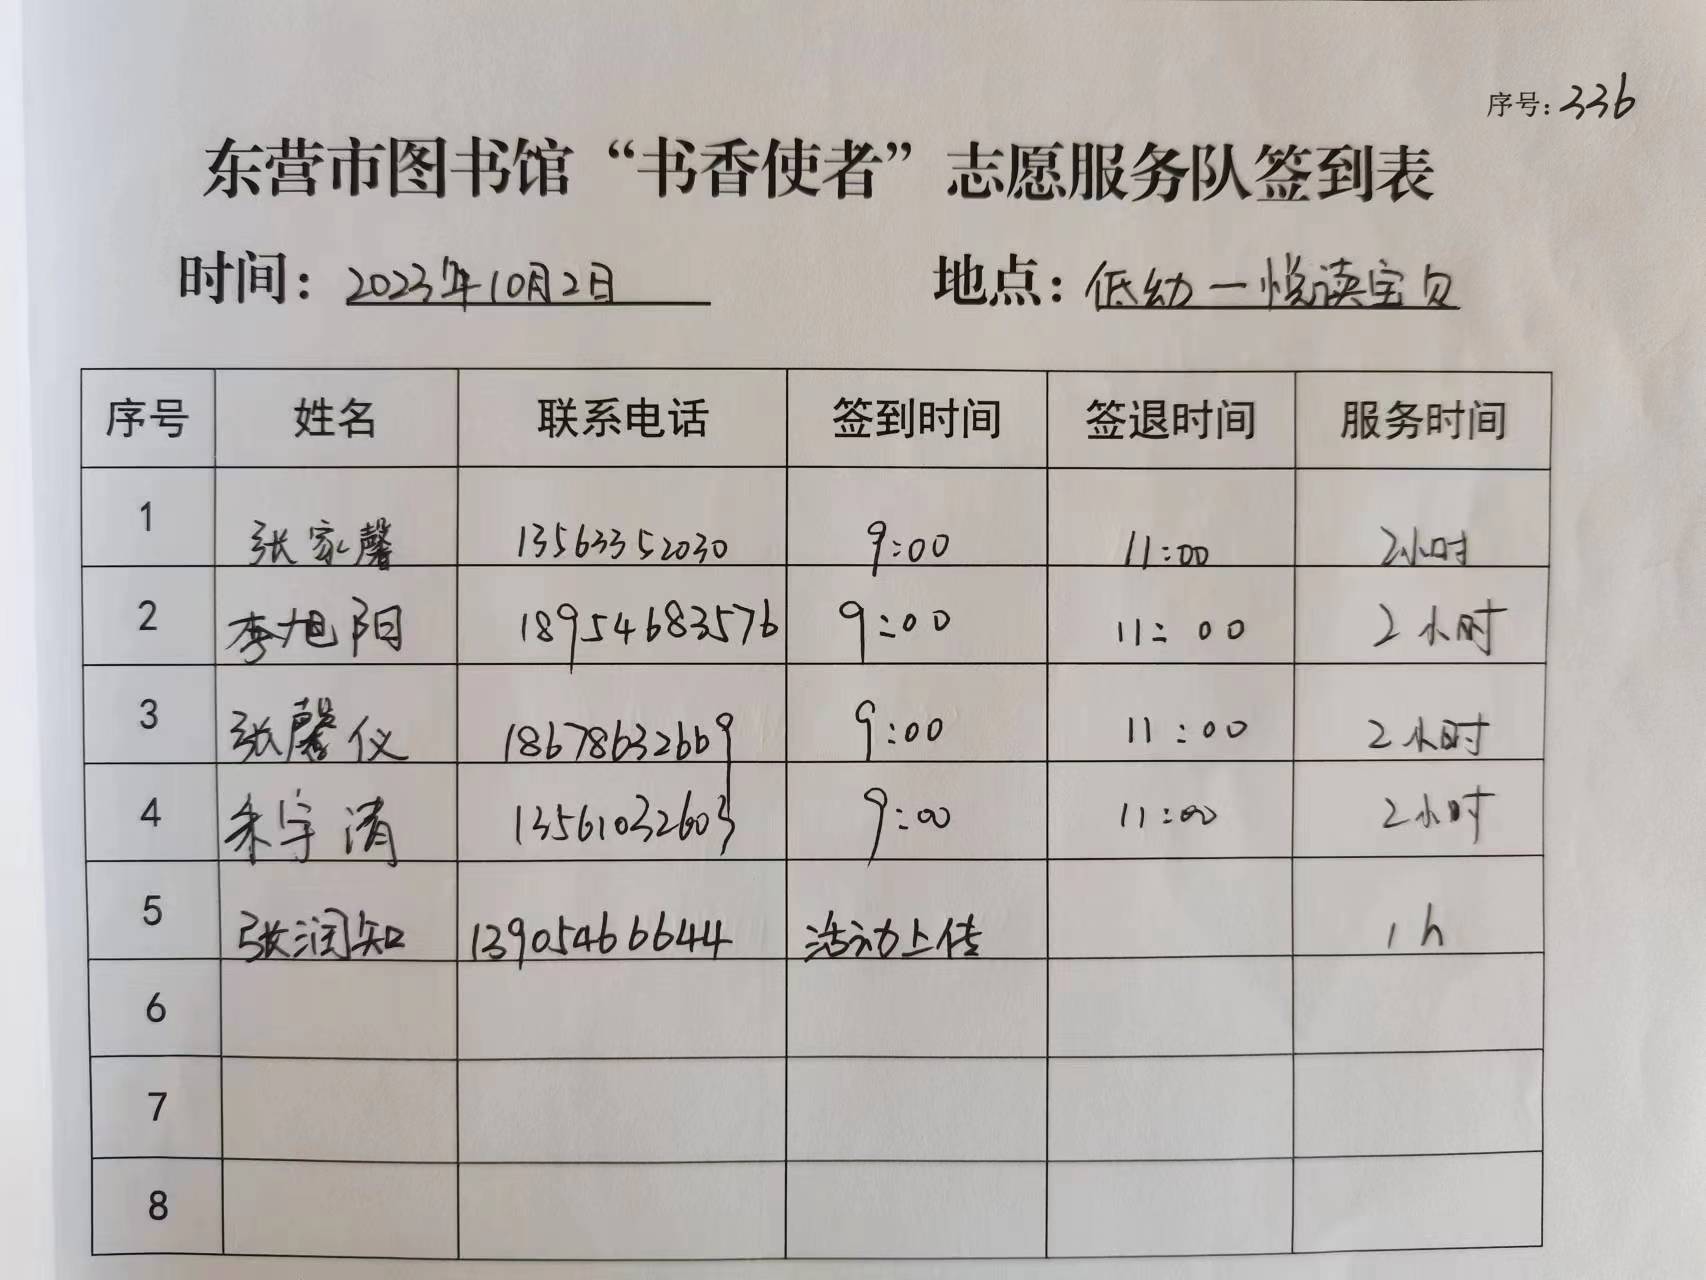 序号:336
东营市图书馆“书香使者”志愿服务队签到表
时间:2023年10月2日 地点:低幼一悦读宝贝
序号 姓名 联系电话 签到时间 签退时间 服务时间
1 张家馨 13563352030 9:00 11:00 2小时
2 李旭阳 18954683576 9:00 11:00 2小时
3 张馨仪 18678632669 9:00 11:00 2小时
4 朱宇清 13561032603 9:00 11:00 2小时
5 张润知 13905466644 活动上传 1h
6
7
8